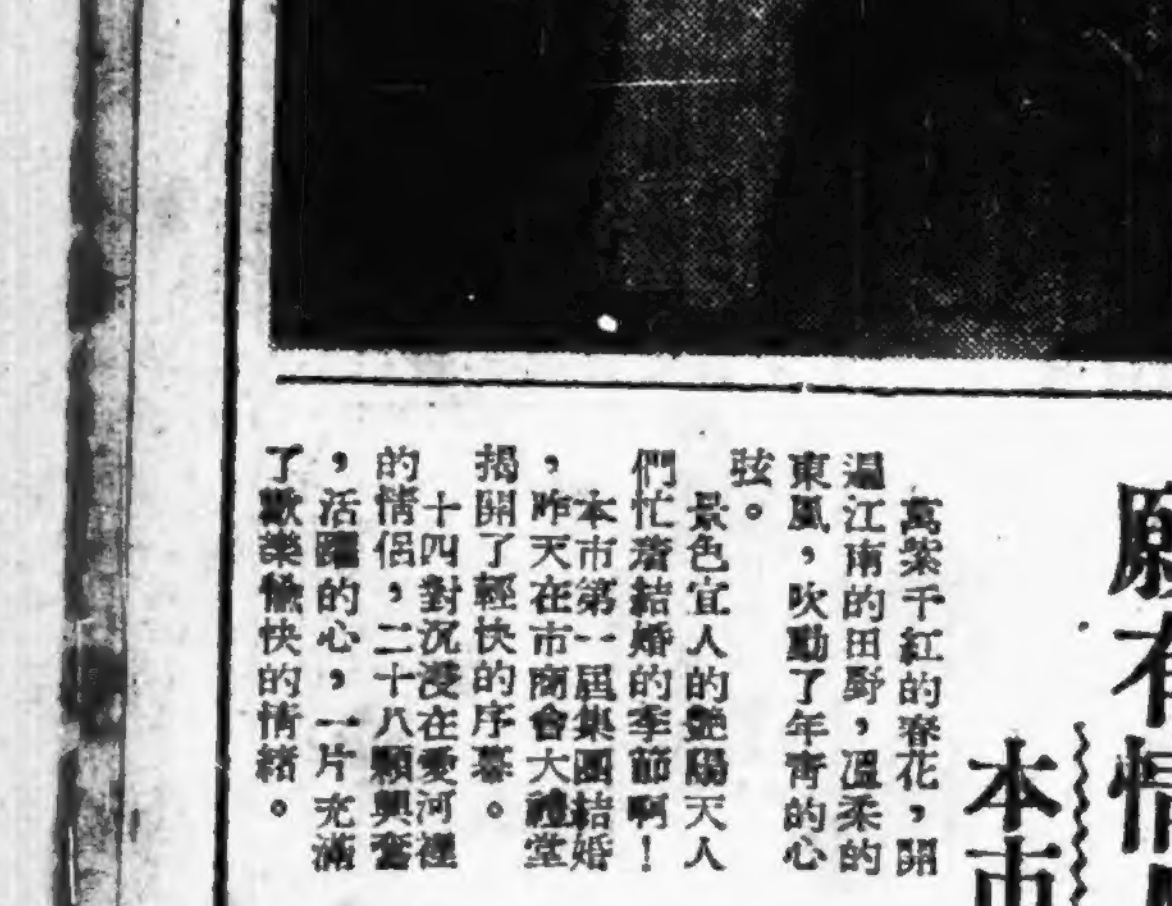 願有情
本市
萬紫千紅的春花，開
遍江南的田野，溫柔的
東風，吹動了年靑的心
弦。
景色宜人的艷陽天人
們忙着結婚的季節啊！
本市第一屆集團結婚
，昨天在市商會大禮堂
揭開了輕快的序幕。
十四對沉浸在愛河裡
的情侶，二十八顆興奮
，活躍的心，一片充滿
了歡樂愉快的情緒。